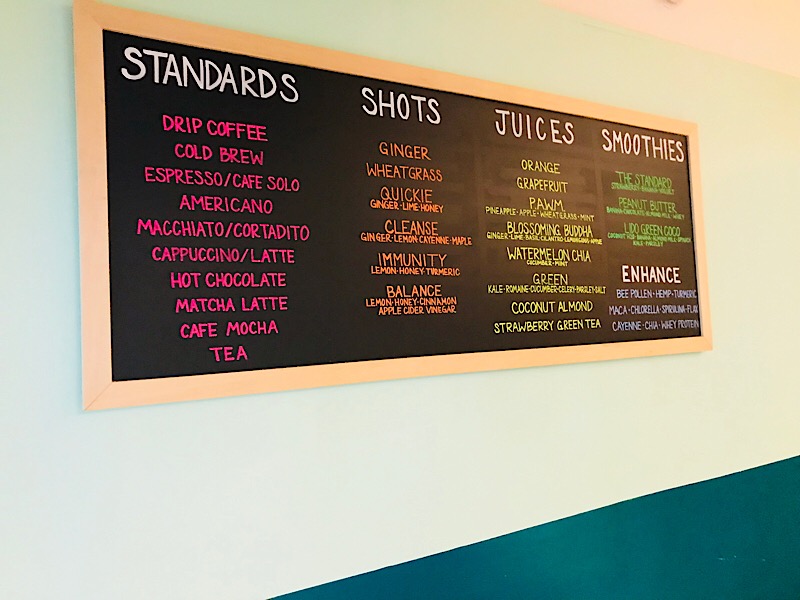 STANDARDS
DRIP COFFEE
COLD BREW
ESPRESSO/CAFE SOLO
AMERICANO
MACCHIATO/CORTADITO
CAPPUCCINO/LATTE
HOT CHOCOLATE
MATCHA LATTE
CAFE MOCHA
TEA
SHOTS
GINGER
WHEATGRASS
QUICKIE
GINGER·LIME·HONEY
CLEANSE
GINGER·LEMON·CAYENNE·MAPLE
IMMUNITY
LEMON·HONEY·TURMERIC
BALANCE
LEMON·HONEY·CINNAMON
APPLE CIDER VINEGAR
JUICES
ORANGE
GRAPEFRUIT
PAWM
PINEAPPLE·APPLE·WHEATGRASS·MINT
BLOSSOMING BUDDHA
GINGER·LIME·BASIL·CILANTRO·LEMONGRASS·APPLE
WATERMELON CHIA
CUCUMBER·MINT
GREEN
KALE·ROMAINE·CUCUMBER·CELERY·PARSLEY·SALT
COCONUT ALMOND
STRAWBERRY GREEN TEA
SMOOTHIES
THE STANDARD
STRAWBERRY·BANANA·YOGURT
PEANUT BUTTER
BANANA·CHOCOLATE·ALMOND MILK·WHEY
LIDO GREEN COCO
BANANA·ALMOND MILK·SPINACH
KALE·PARSLEY
ENHANCE
BEE POLLEN·HEMP·TURMERIC
MACA·CHLORELLA·SPIRULINA·FLAX
CAYENNE·CHIA·WHEY PROTEIN